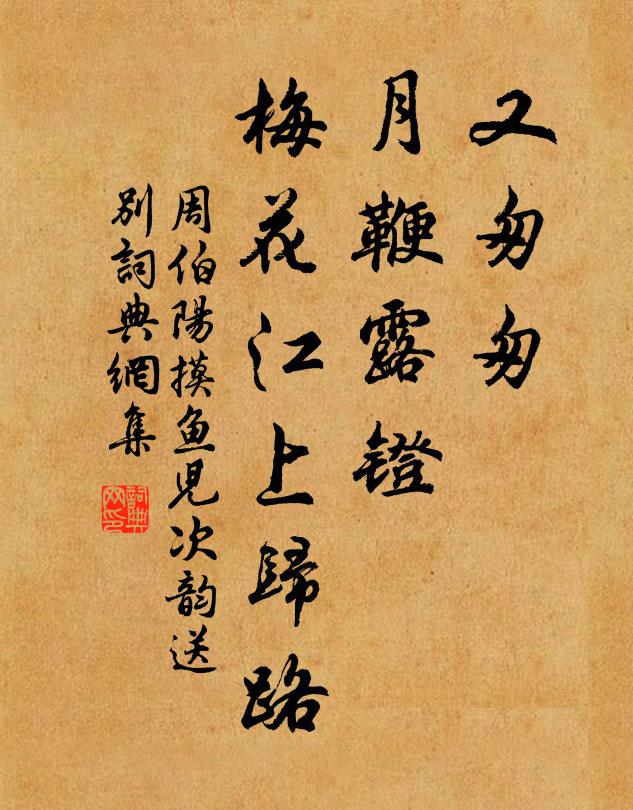 又匆匆
月鞭露鐙
梅花江上歸路
周伯陽摸魚兒次韵送
別詞典網集
詞典网印